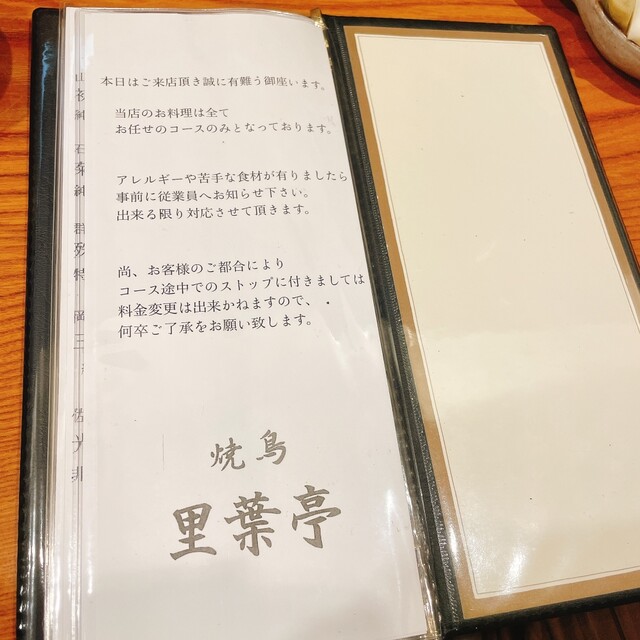 本日はご来店頂き誠に有難う御座います。
当店のお料理は全て
お任せのコースのみとなっております。
アレルギーや苦手な食材が有りましたら
事前に従業員へお知らせ下さい。
出来る限り対応させて頂きます。
尚、お客様のご都合により
コース途中でのストップに付きましては
料金変更は出来かねますので、
何卒ご了承をお願い致します。
焼鳥
里葉亭